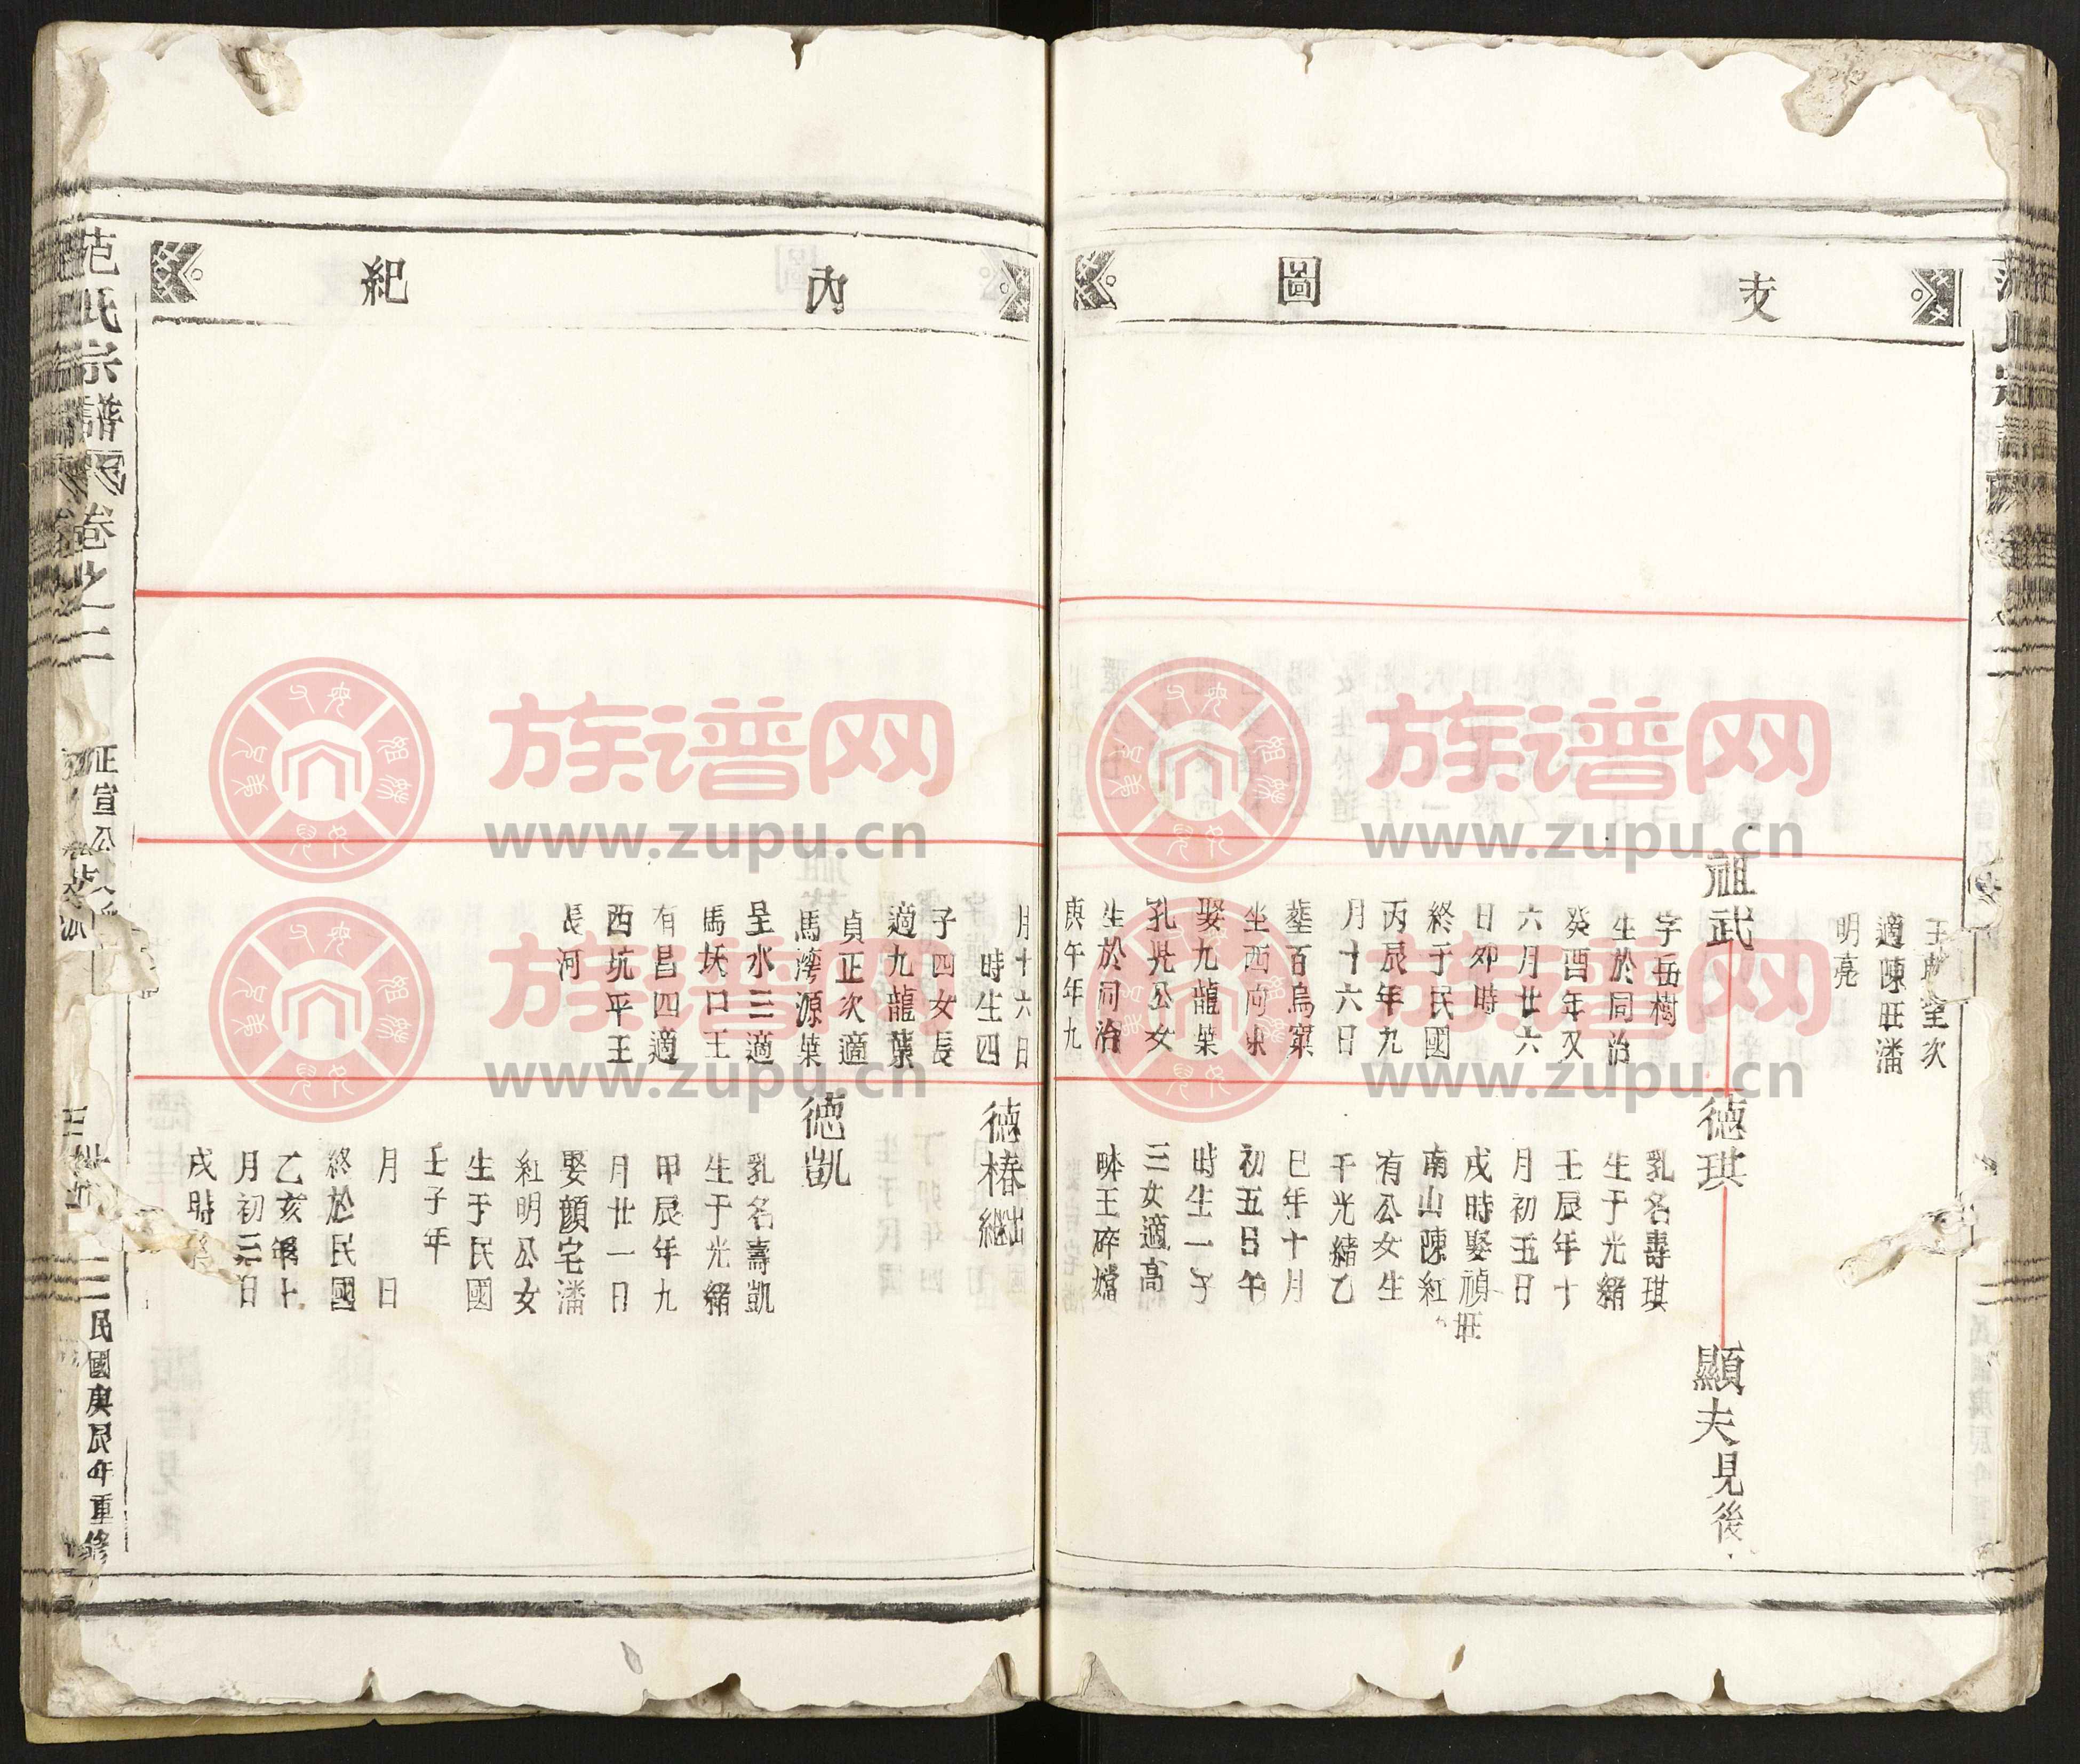 支 圖
王
室次
適陳旺潘
明亮
祖武
字岳樹
生於同治
癸酉年又
六月廿六
日卯時
終于民國
丙辰年九
月十六日
塟百烏窠
坐西向東
娶九龍葉
孔光公女
生於同治
庚午年九
德琪
乳名壽琪
生于光緒
壬辰年十
月初五日
戌時娶禎旺
南山陳紅
有公女生
于光緒乙
巳年十月
初五日午
時生一子
三女適高
畔王碎壋
顯夫見後
內 紀
月十六日
時生四
子四女長
適九龍葉
貞正次適
馬灣源葉
呈水三適
馬坆口王
有昌四適
西坑平王
長河
德椿繼出
德凱
乳名壽凱
生于光緒
甲辰年九
月廿一日
娶顏宅潘
紅明公女
生于民國
壬子年
月 日
終於民國
乙亥年十
月初三日
戌時
范氏宗譜 卷之二
正宣公
民國庚辰年重修
族谱网
www.zupu.cn
族谱网
www.zupu.cn
族谱网
www.zupu.cn
族谱网
www.zupu.cn